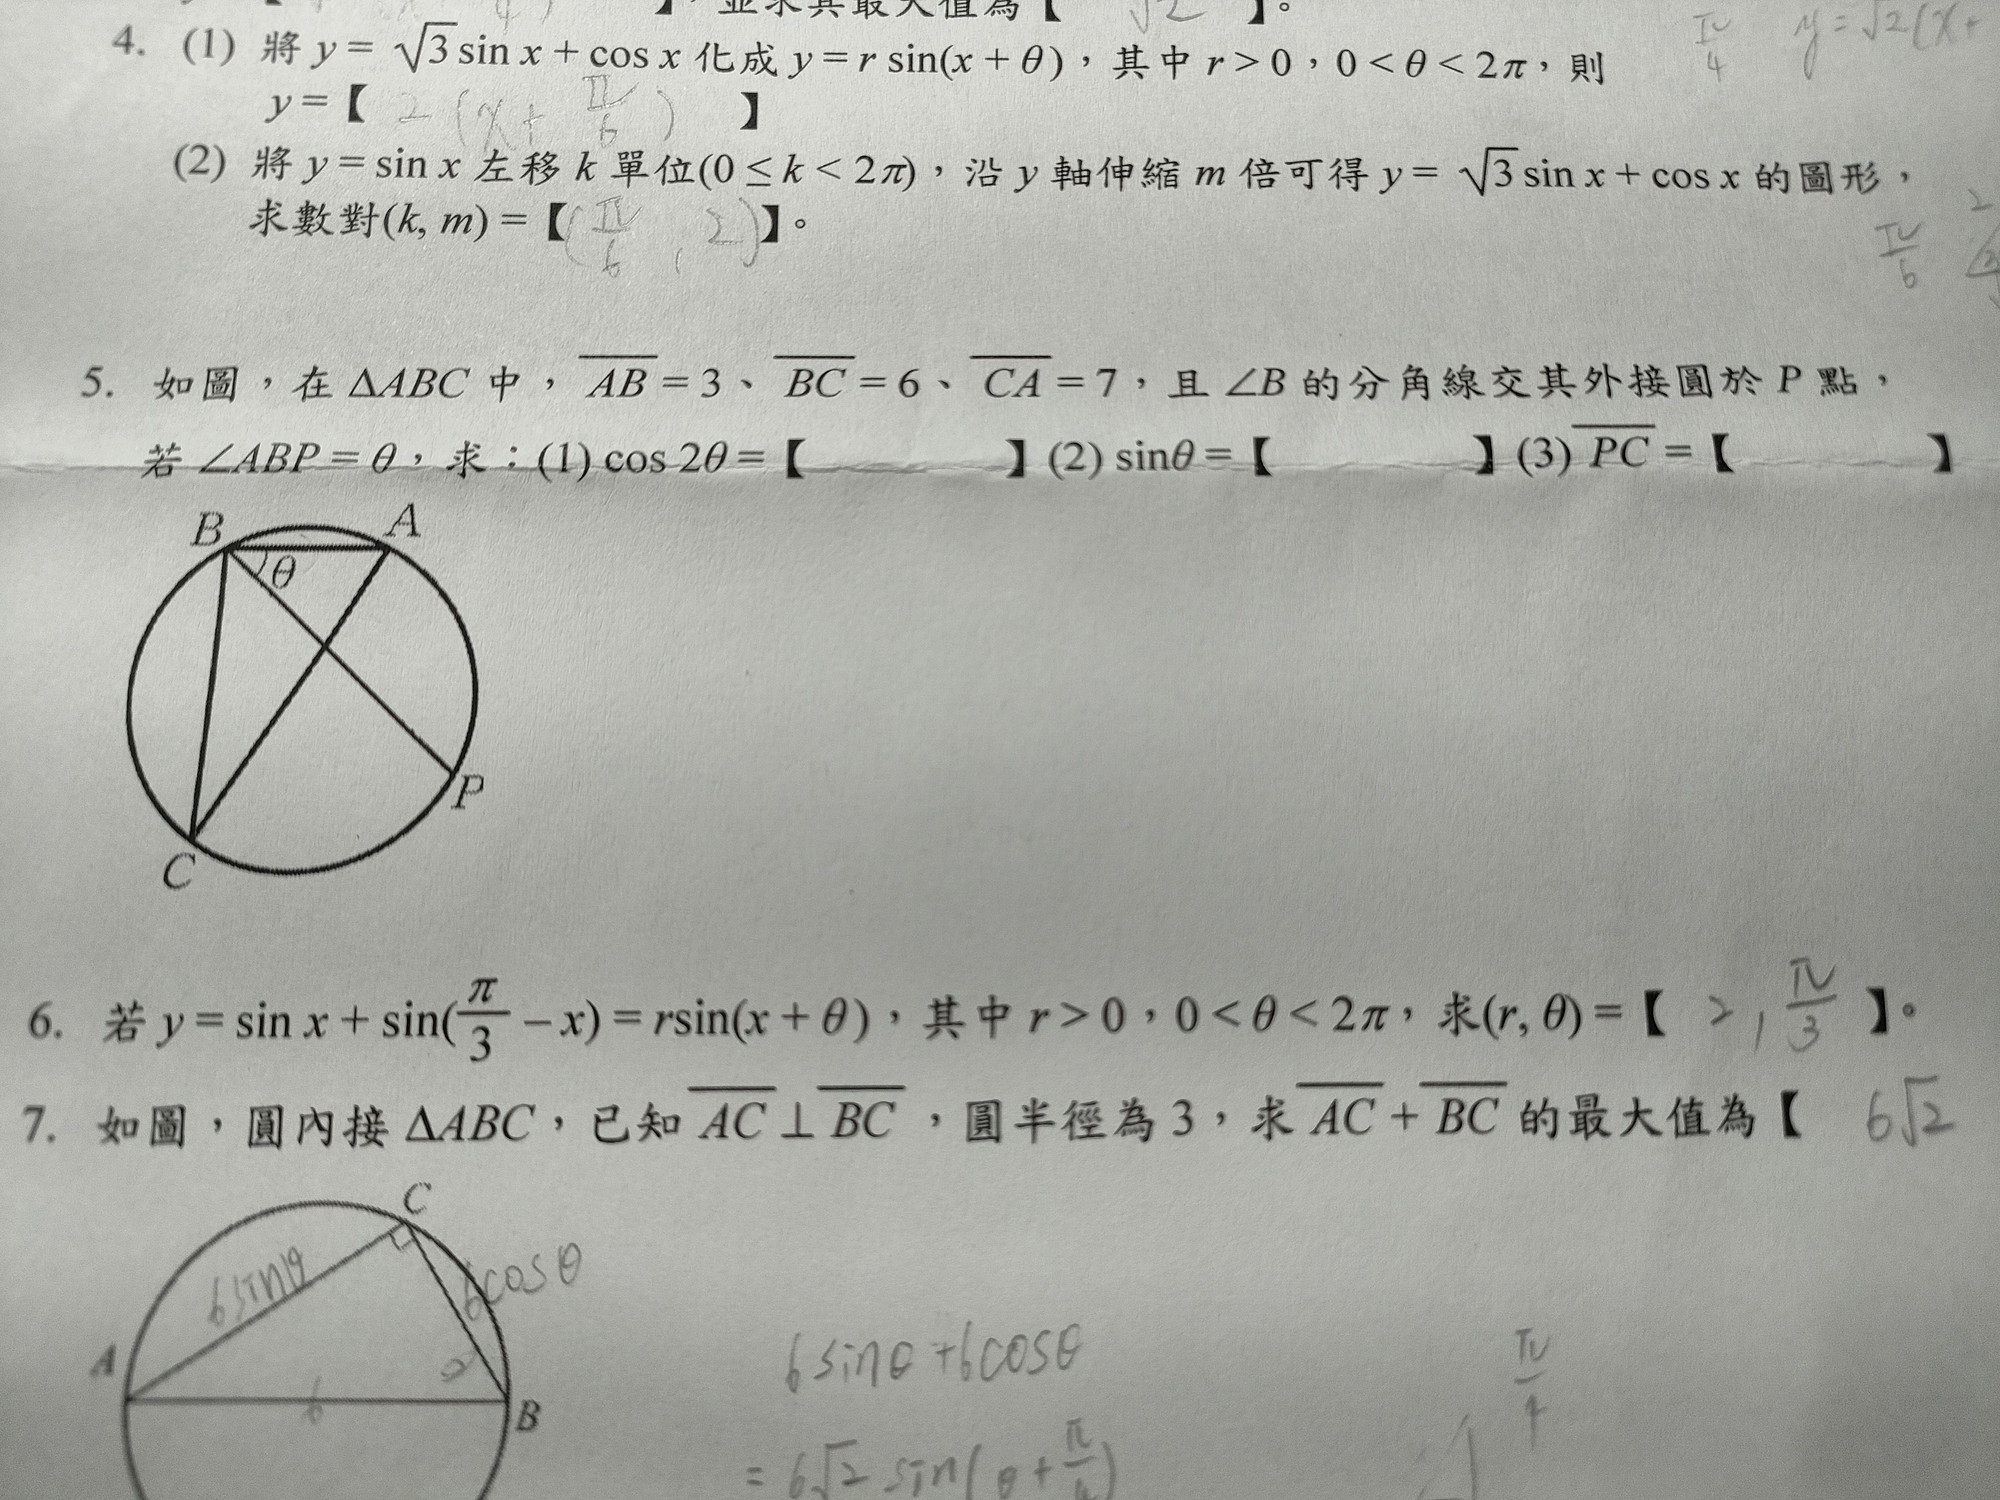 】，並求其最大值為【 √2 】。
π/4 y=√2(x+
4. (1) 將 y = √3 sin x + cos x 化成 y = r sin(x + θ)，其中 r > 0，0 < θ < 2π，則
y =【 2(x+π/6) 】
(2) 將 y = sin x 左移 k 單位(0 ≤ k < 2π)，沿 y 軸伸縮 m 倍可得 y = √3 sin x + cos x 的圖形，
求數對(k, m) =【(π/6, 2)】。
π/6 2
5. 如圖，在 ΔABC 中，AB = 3、BC = 6、CA = 7，且 ∠B 的分角線交其外接圓於 P 點，
若 ∠ABP = θ，求：(1) cos 2θ =【 】(2) sinθ =【 】(3) PC =【 】
B A
θ
P
C
6. 若 y = sin x + sin(π/3 − x) = rsin(x + θ)，其中 r > 0，0 < θ < 2π，求(r, θ) =【 2, π/3 】。
7. 如圖，圓內接 ΔABC，已知 AC ⊥ BC，圓半徑為 3，求 AC + BC 的最大值為【 6√2
C
6sinθ 6cosθ
A θ
6 B
6sinθ+6cosθ
π/4
= 6√2 sin(θ+π/4)